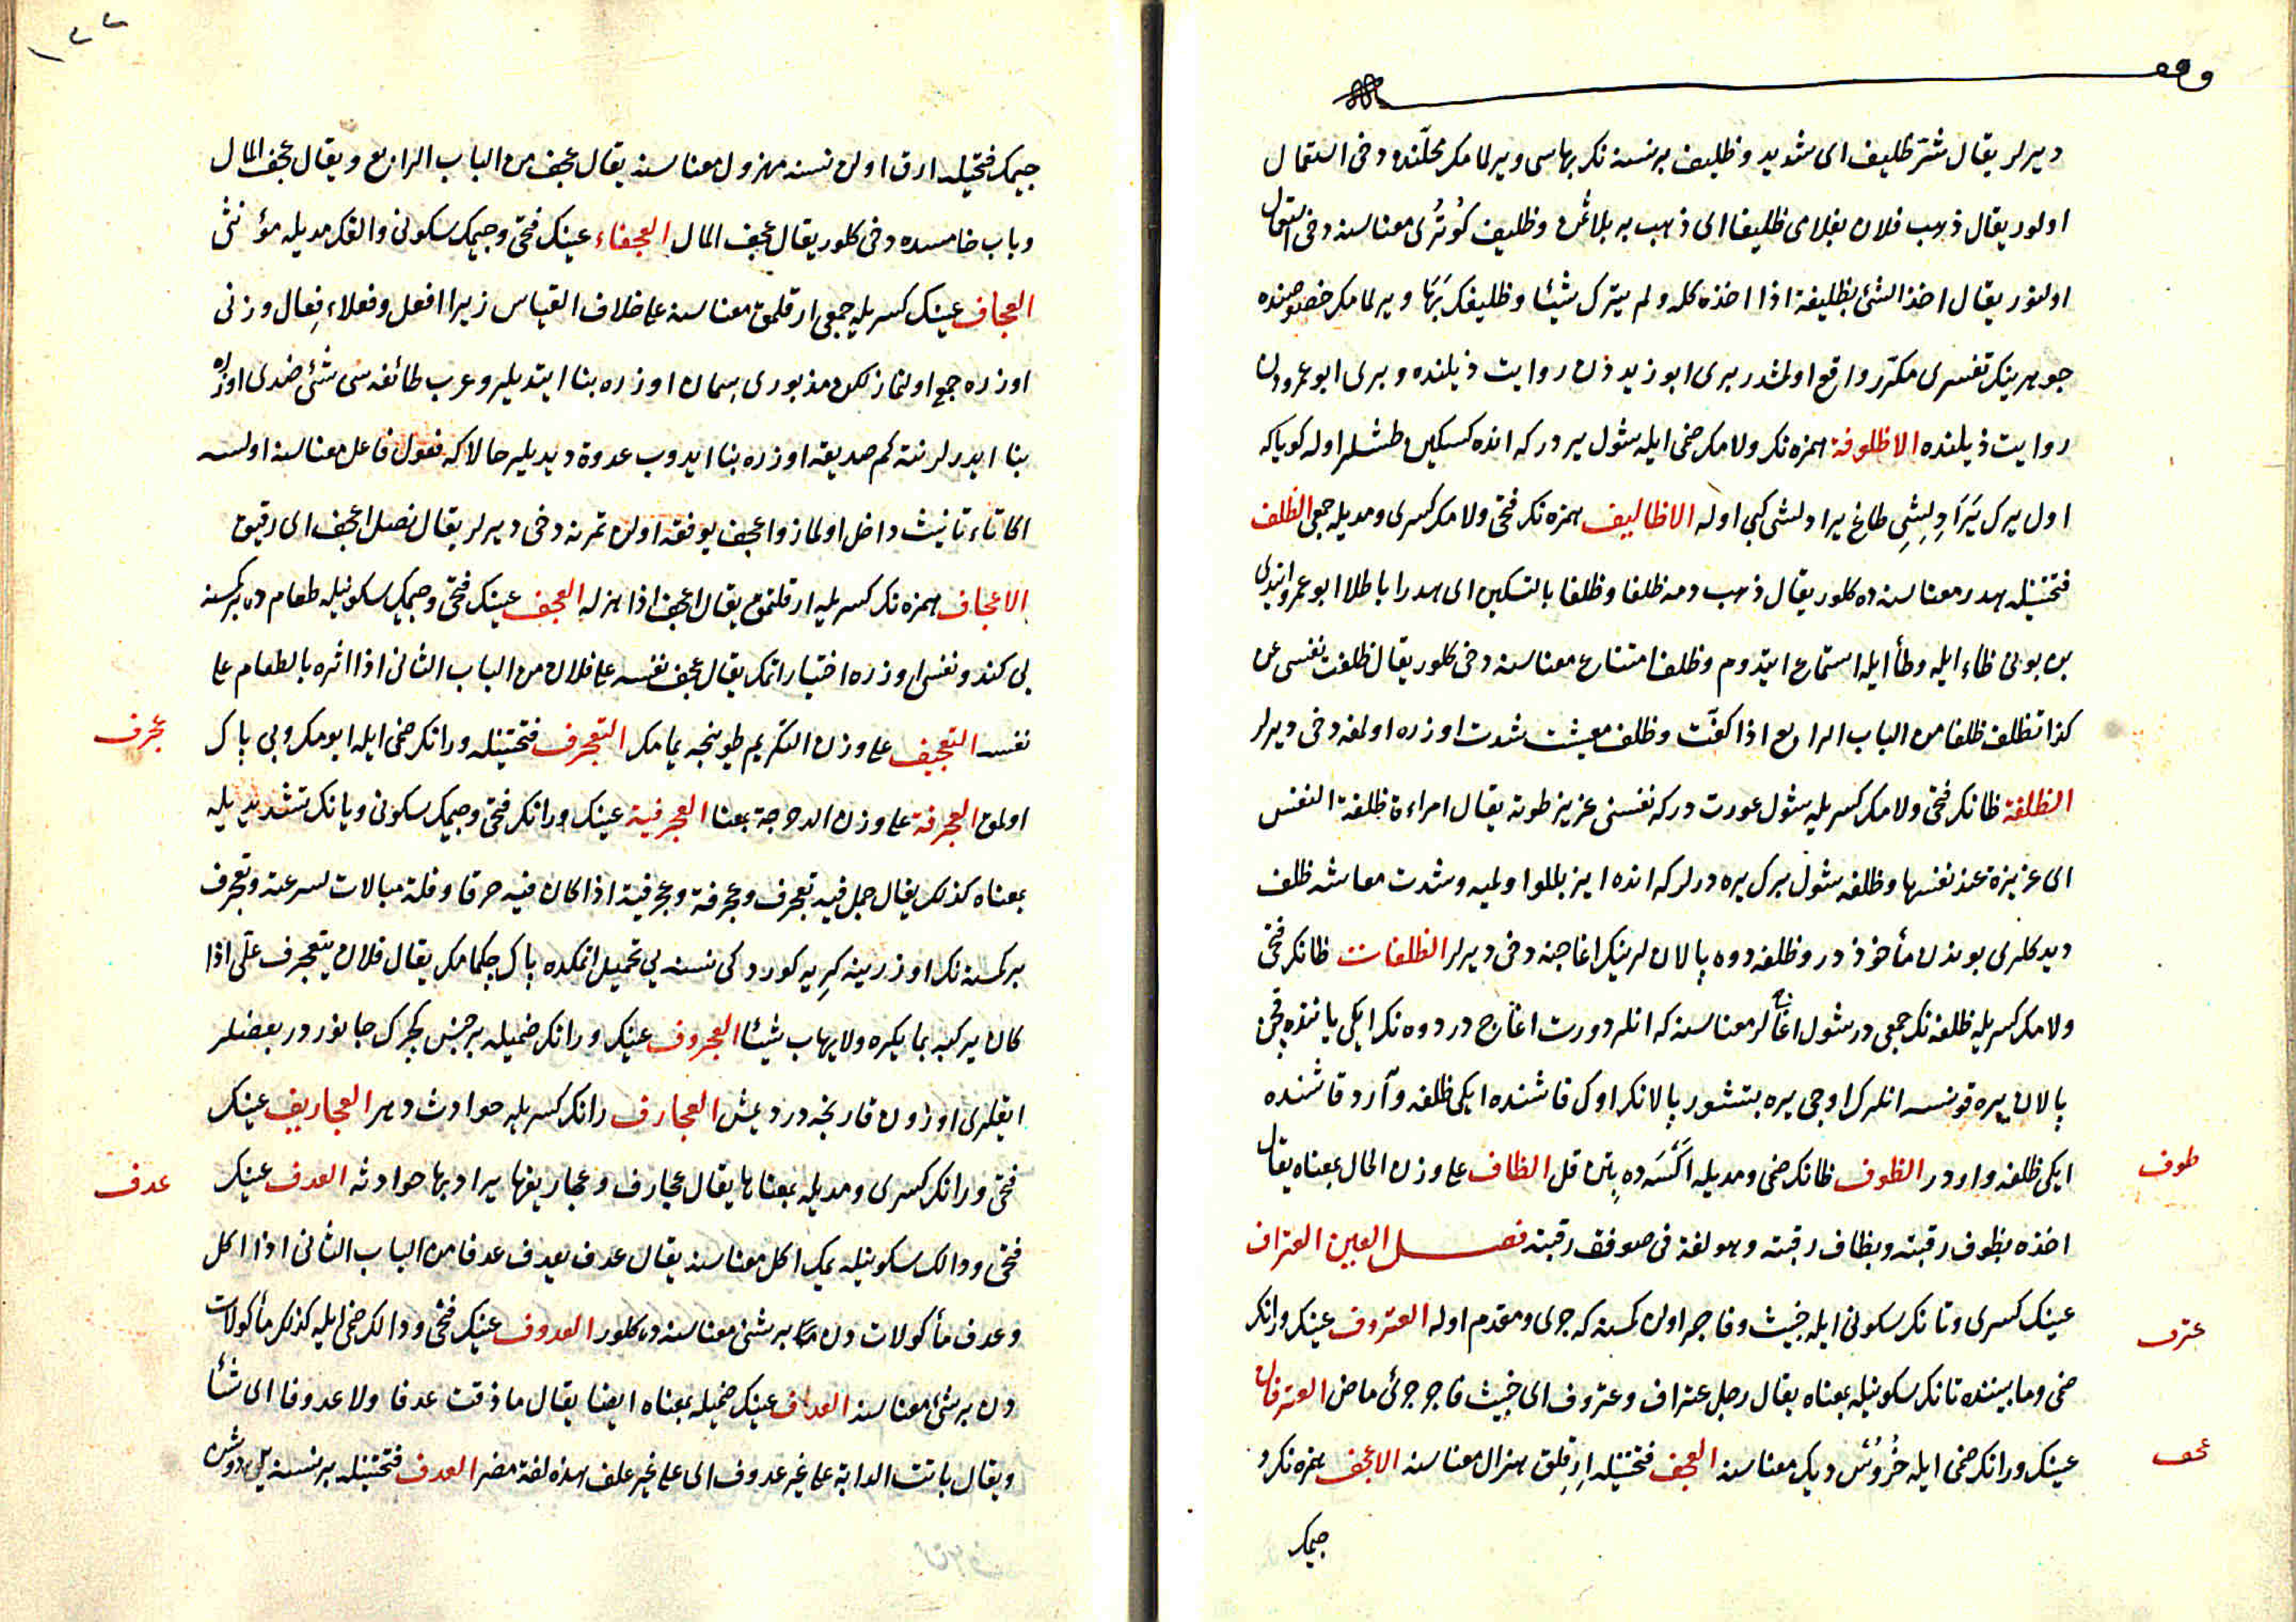 ديرلر يقال شرّ ظليف اى شديد و ظليف بر نسنه نك بهاسى ويرلمامك محلّنده دخى استعمال
اولور يقال ذهب فلان بغلامى ظليفا اى ذهب به بلا ثمن و ظليف كوتُرُى معناسنه دخى استعمال
اولنور يقال اخذ الشئ بظليفه اذا اخذه كله ولم يترك شيئا و ظليفك بَهَا ويرلمامك خصوصنده
جوهرينك تفسرى مكرّر واقع اولمشدر برى ابو زيددن روايت ذيلنده و برى ابو عمرودن
روايت ذيلنده الاظلوفة همزه نك ولامك ضمى ايله شول يردر كه انده كسكين طشلر اوله كوياكه
اول يرك يَرَادِلِشِى طاغ يرادلشى كبى اوله الاظاليف همزه نك فتحى ولامك كسرى و مديله جمعى الظلف
فتحتينله هدر معناسنه ده كلور يقال ذهب دمه ظلفا و ظلفا بالتسكين اى هدرا باطلا ابو عمرو ايتدى
بن بونى ظاء ايله و طأ ايله استماع ايتدوم و ظلف امتناع معناسنه دخى كلور يقال ظلفت نفسى عن
كذا تظلف ظلفا من الباب الرابع اذا كفّت و ظلف معيشت شدت اوزره اولمغه دخى ديرلر
الظلفة ظانك فتحى ولامك كسريله شول عورت در كه نفسنى عزيز طوته يقال امراءة ظلفة النفس
اى عزيزة عند نفسها و ظلفه شول برك يره ديرلر كه انده ايز بللو اولميه و شدت معاشه ظلف
ديدكلرى بوندن مأخوذدر و ظلفه دوه پالانلرينك اغاجنه دخى ديرلر الظلفات ظانك فتحى
ولامك كسريله ظلفه نك جمعى در شول اغاجلر معناسنه كه انلر دورت اغاج در دوه نك ايكى ياننده قچن
پالان يره قونسه انلرك اوجى يره بتشور پالانك اوك قاشنده ايكى ظلفه و آرد قاشنده
ايكى ظلفه واردر الظوف ظانك ضمى و مديله اكسه ده بتن قل الظاف على وزن الحال بمعناه يقال
اخذه بظوف رقبته و بظاف رقبته وهو لغة فى صوف رقبته فصــــل العين العتراف
عينك كسرى و تانك سكونى ايله خبيث و فاجر اولن كمسنه كه جرى و مقدم اوله العتروف عينك و رانك
ضمى و ما بيننده تانك سكونيله بمعناه يقال رجل عتراف و عتروف اى خبيث فاجر جرئ ماض العترفان
عينك و رانك ضمى ايله خُروُس ديك معناسنه العجف فتحتينله ارقلق هزال معناسنه الاعجف همزه نك و
جيمك
طوف
عترف
عجف
جيمك فتحيله ارق اولن نسنه مهزول معناسنه يقال عجف من الباب الرابع و يقال عجف المال
و باب خامسده دخى كلور يقال عجف المال العجفاء عينك فتحى و جيمك سكونى و الفك مديله مؤنثى
العجاف عينك كسريله جمعى ارقلمق معناسنه على خلاف القياس زيرا افعل و فعلاء فِعال وزنى
اوزره جمع اولنماز لكن مذبورى سمان اوزره بنا ايتديلر و عرب طائفه سى شئ ضدى اوزره
بنا ايدرلر نته كم صديقه اوزره بنا ايدوب عدوة ديديلر حالا كه فعول فاعل معناسنه اولسه
اكا تاء تأنيث داخل اولماز و اعجف يوفقه اولن تمرنه دخى ديرلر يقال نصل اعجف اى رقيق
الاعجاف همزه نك كسريله ارقلتمق يقال اعجف اذا هزله العجف عينك فتحى و جيمك سكونيله طعامده بر كمسنه
يى كندو نفسى اوزره اختيار اتمك يقال عجف نفسه على فلان من الباب الثانى اذا اثره بالطعام على
نفسه التعجيف على وزن التكريم طوينجه يمامك التعجرف فتحتينله و رانك ضمى ايله ايومك و بى باك
اولمق العجرفة على وزن الدحرجة بمعنا العجرفية عينك و رانك فتحى و جيمك سكونى و يانك تشديديله
بمعناه كذلك يقال جمل فيه تعجرف و عجرفة و عجرفية اذا كان فيه خرقا و قلة مبالات لسرعته و تعجرف
بر كمسنه نك اوزرينه كريه كوردكى نسنه يى تحميل اتمكده باك چكمامك يقال فلان يتعجرف علّى اذا
كان يركبه بما يكره ولا يهاب شيئا العجروف عينك و رانك ضميله بر جنس بجك جانور در بعضلر
ايقلرى اوزون قارنجه در ديمش العجارف رانك كسريله حوادث دهر العجاريف عينك
فتحى و رانك كسرى و مديله بمعناها يقال عجارف و عجاريفها يرادبها حوادثه العدف عينك
فتحى و دالك سكونيله يمك اكل معناسنه يقال عدف يعدف عدفا من الباب الثانى اذا اكل
و عدف مأكولاتدن بر شئ معناسنه ده كلور العدوف عينك فتحى و دالك ضمى ايله كذلك مأكولات
دن بر شئ معناسنه العداف عينك ضميله بمعناه ايضا يقال ما ذقت عدفا ولا عدوفا اى شئا
و يقال باتت الدابة على غير عدوف اى على غير علف هذه لغة مضر العدف فتحتينله بر نسنه يه دوشن
عجرف
عدف